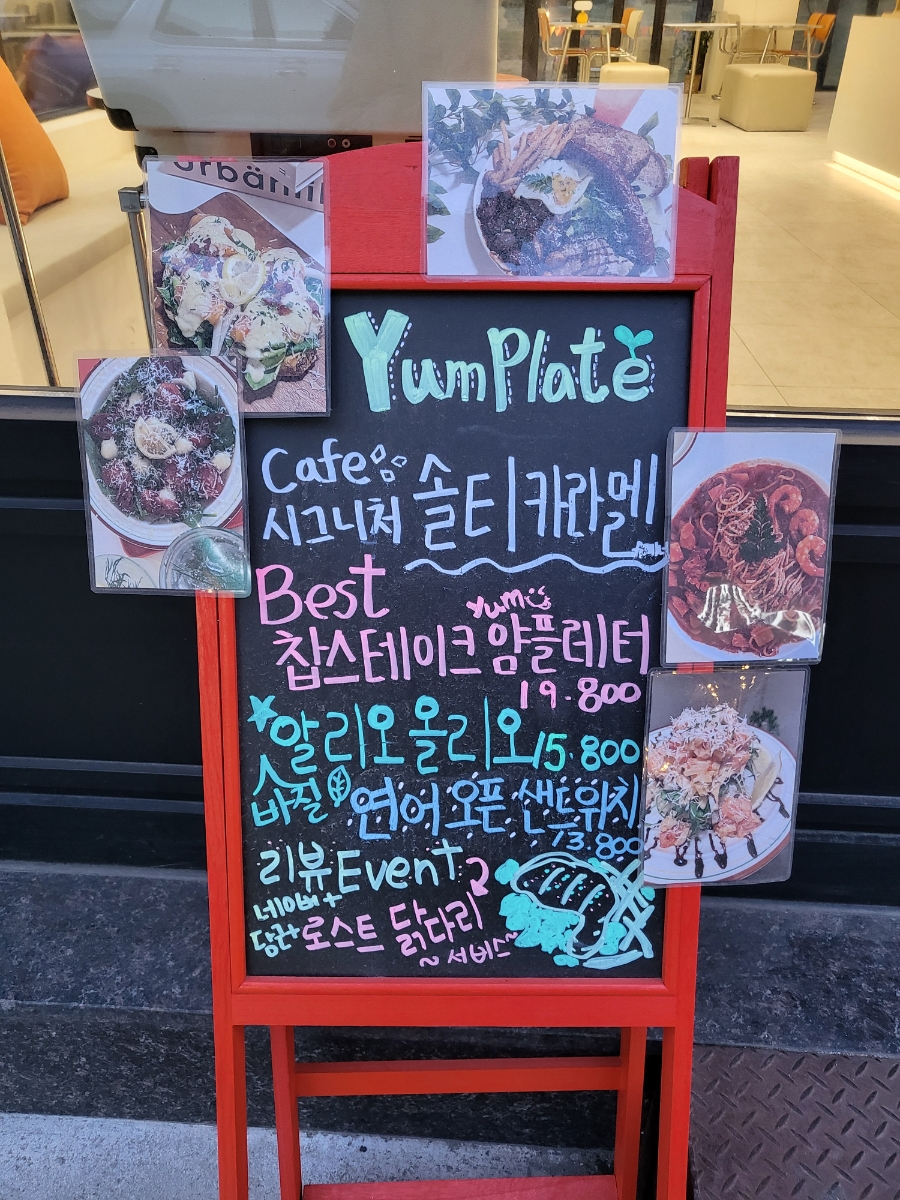 urbän
YumPlate
Cafe
시그니처 솔티카라멜
Best
yum
찹스테이크 얌플레터
19.800
알리오올리오 15.800
바질 연어 오픈 샌드위치
13.800
리뷰 Event
네이버+
당근+ 로스트 닭다리
~서비스~